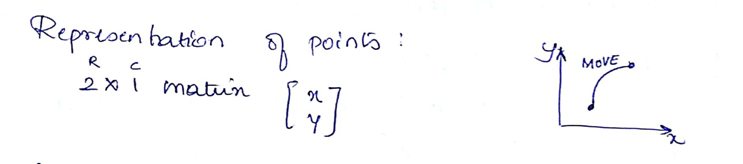 Representation of points :
R C
2 × 1 matrix [x
y]
y MOVE
x